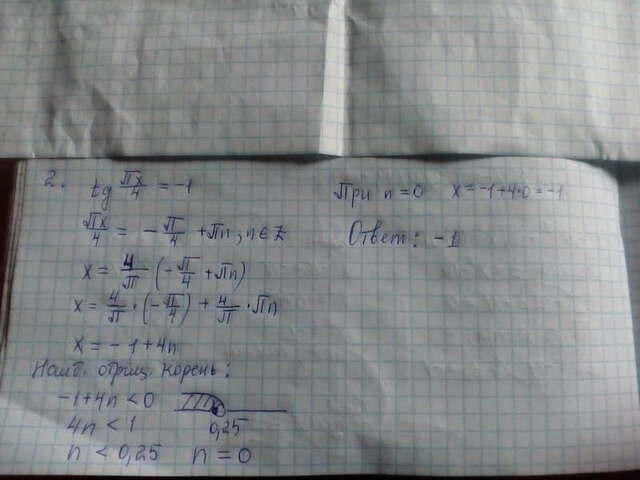 2. tg πx/4 = -1
πx/4 = -π/4 + πn, n ∈ Z
x = 4/π (-π/4 + πn)
x = 4/π · (-π/4) + 4/π · πn
x = -1 + 4n
Наиб. отриц. корень:
-1+4n < 0
4n < 1
0,25
n < 0,25 n = 0
При n = 0 x = -1+4·0 = -1
Ответ: -1